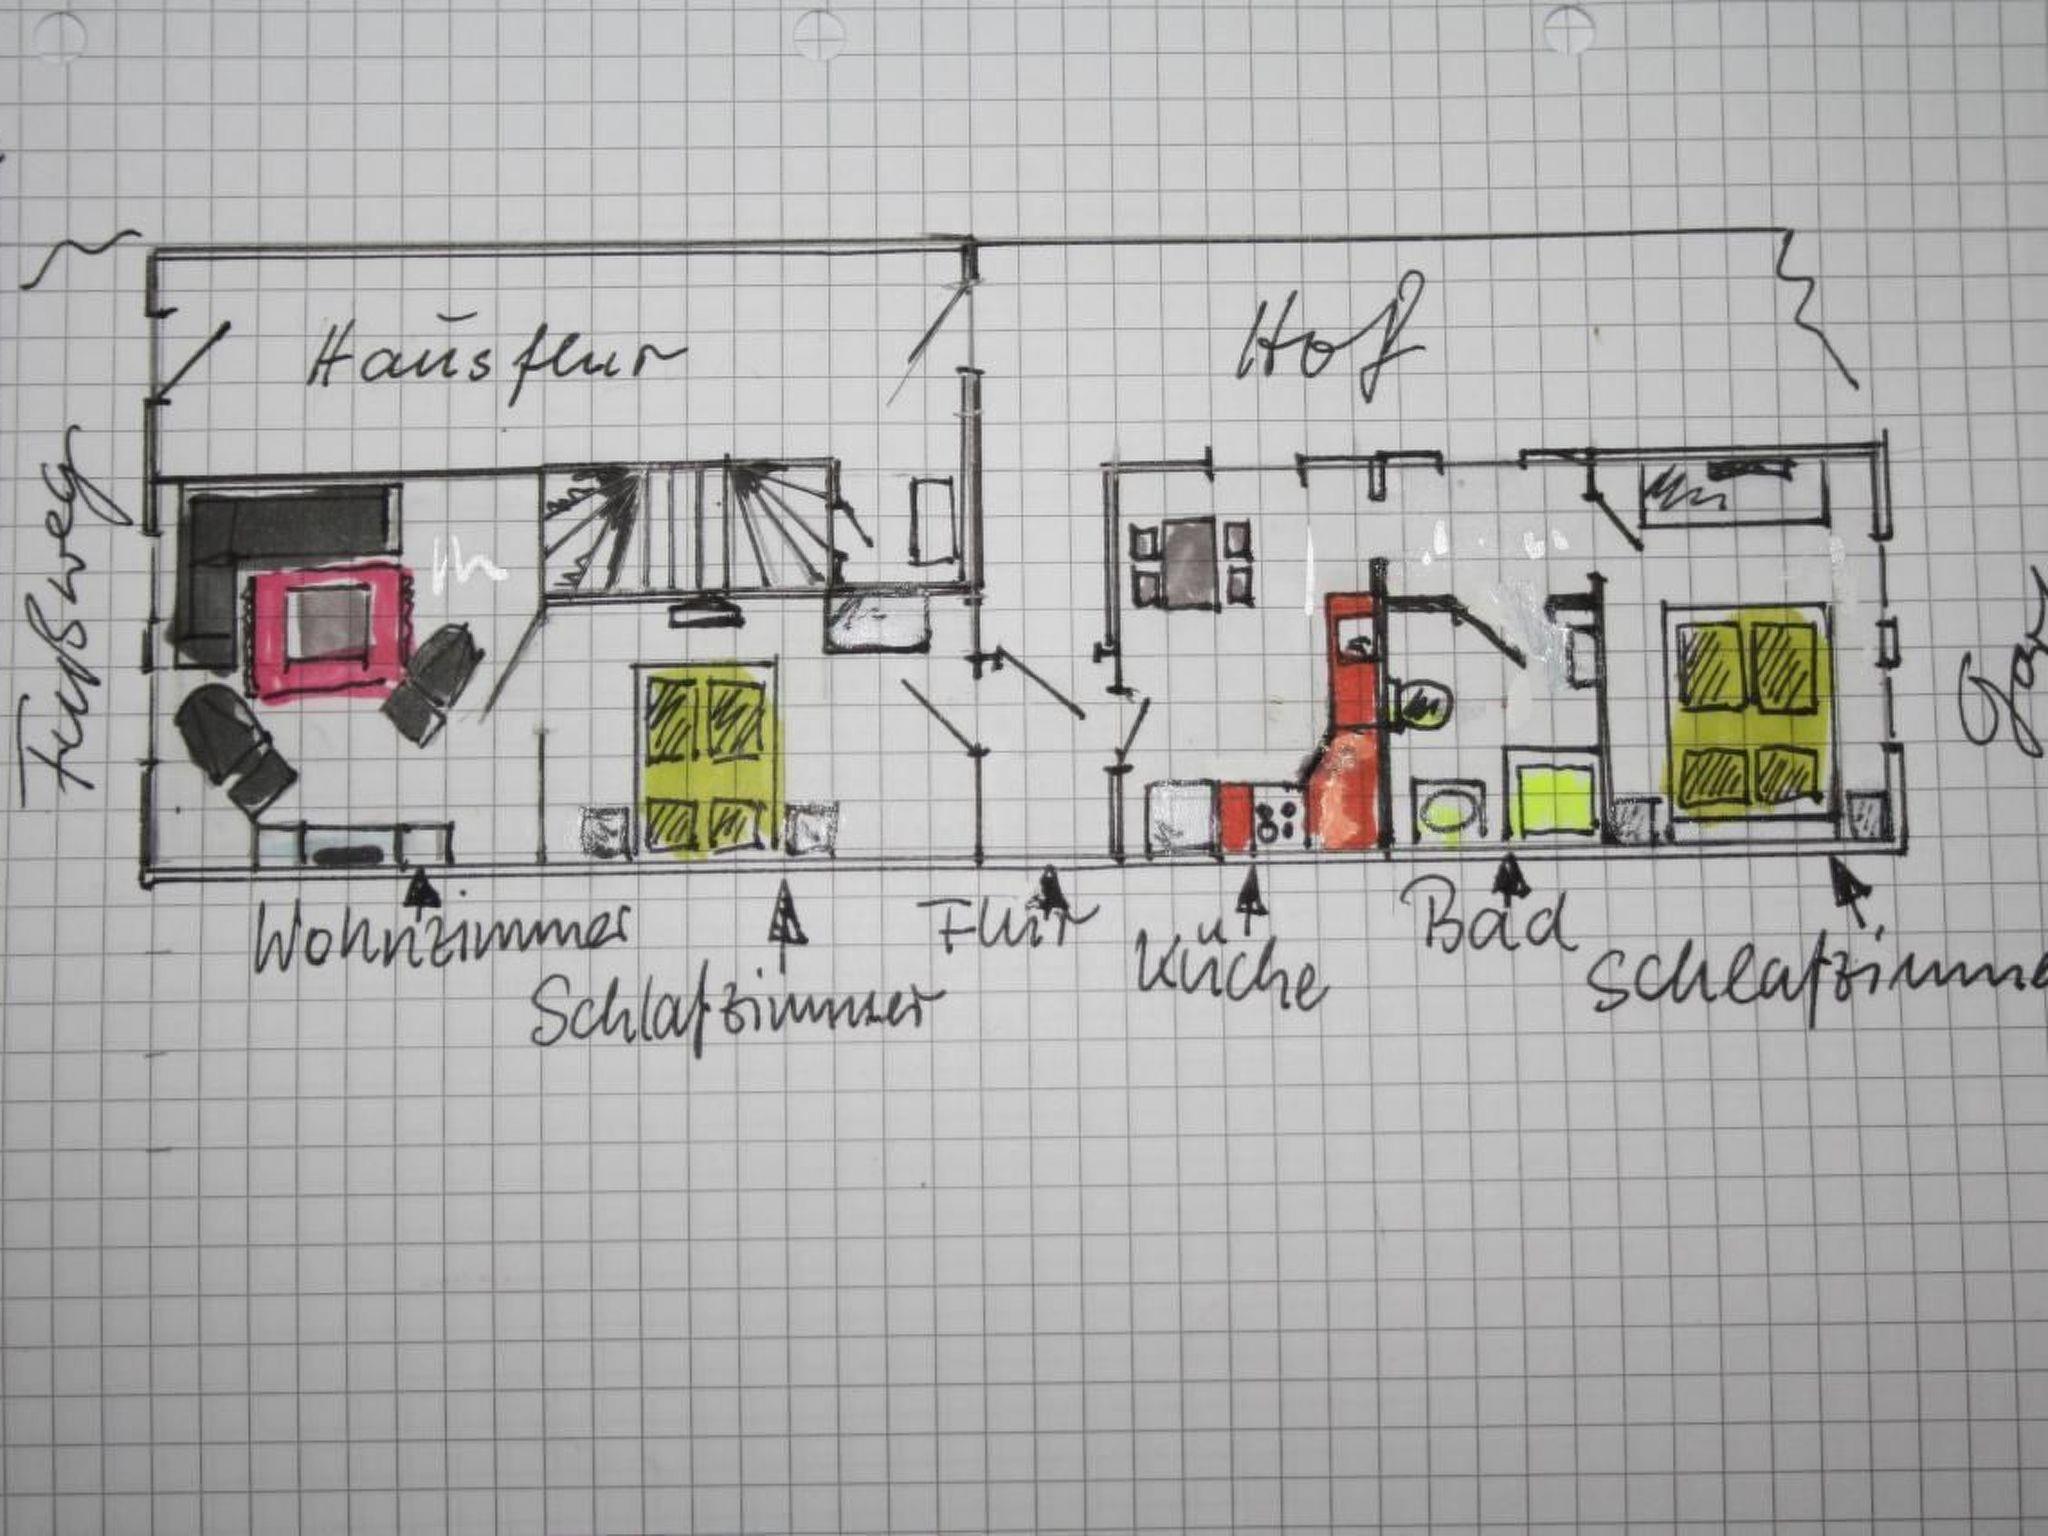 Hausflur
Hof
Fußweg
Gar
Wohnzimmer
Schlafzimmer
Flur
Küche
Bad
Schlafzimme